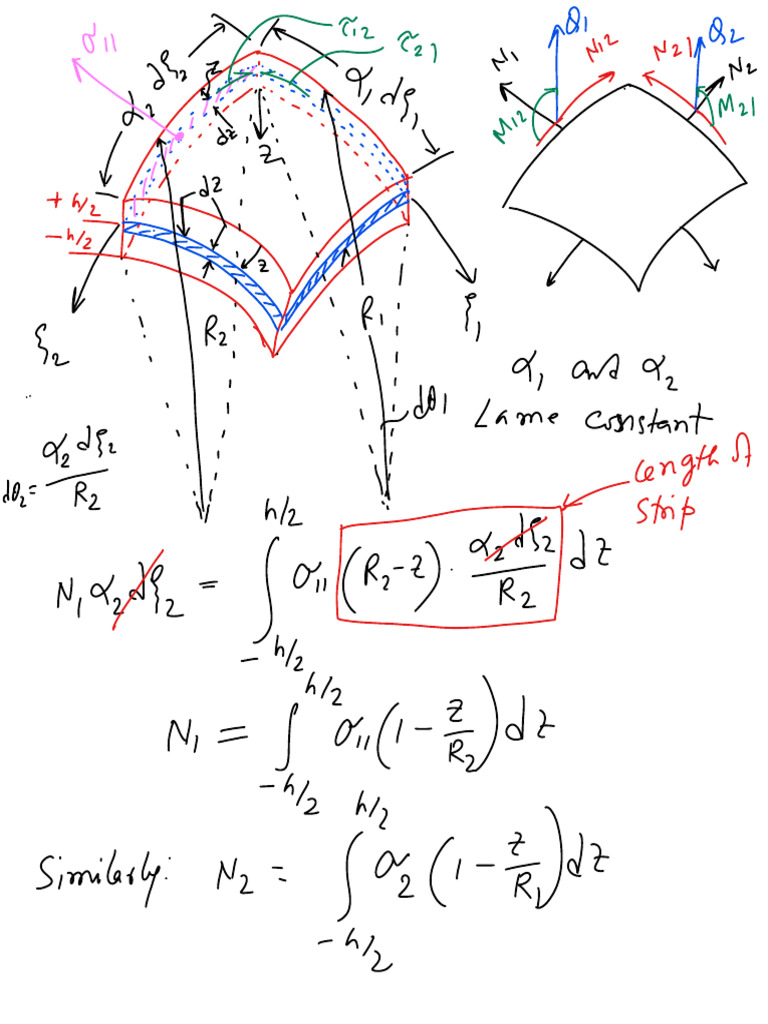 σ11
α2 dξ2
z
τ12
τ21
α1 dξ1
dz
z
dz
z
+h/2
-h/2
R2
R1
ξ2
ξ1
dθ1
N1
Q1
N12
M12
N21
Q2
N2
M21
α1 and α2
Lame constant
dθ2 = α2 dξ2 / R2
length of
strip
N1 α2 dξ2 = ∫_{-h/2}^{h/2} σ11 (R2 - z) · α2 dξ2 / R2 dz
N1 = ∫_{-h/2}^{h/2} σ11 (1 - z/R2) dz
Similarly: N2 = ∫_{-h/2}^{h/2} σ2 (1 - z/R1) dz